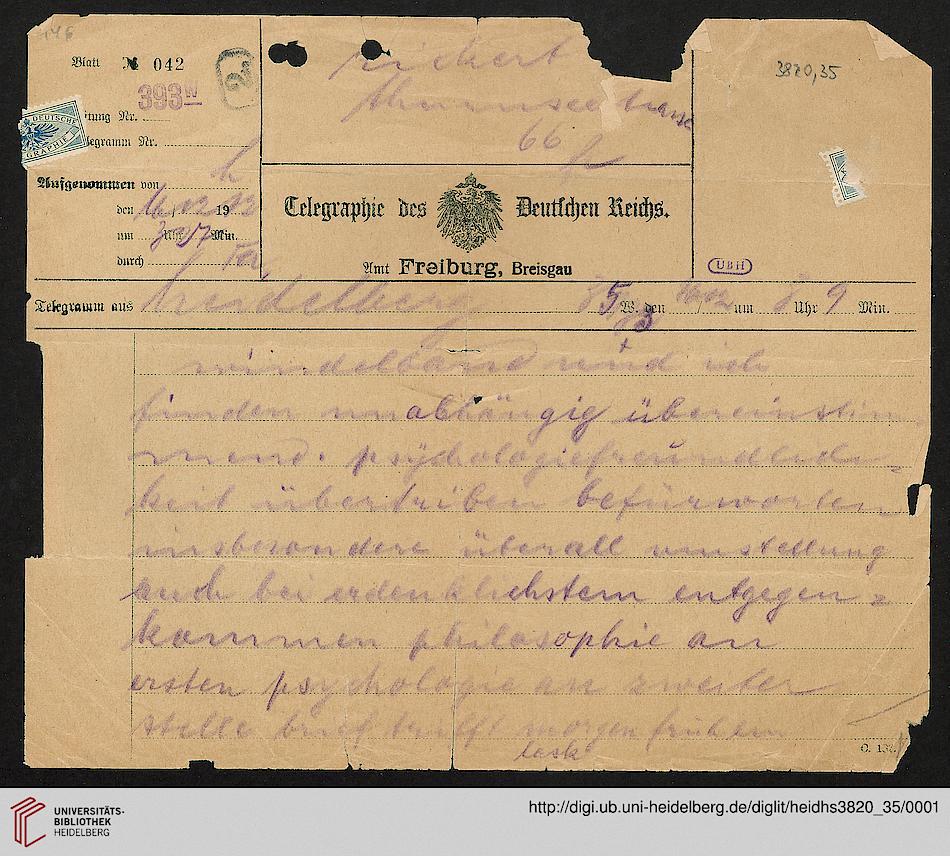 146
Blatt № 042
393W
2.
rickert
thurnseestrasse
66 fr
3820,35
Leitung Nr.
Telegramm Nr.
DEUTSCHE
GRAPHIE
Aufgenommen von h
den 16/12 1913
um Uhr Min.
durch
Telegraphie des Deutschen Reichs.
Amt Freiburg, Breisgau
UBH
Telegramm aus heidelberg W. den um Uhr 9 Min.
windelband und ich
finden unabhängig übereinstim
mend. psychologiefreundlich=
keit übertriben befürworten
insbesondere überall umstellung
auch bei erdenklichstem entgegen=
kommen philosophie an
ersten psychologie an zweiter
stelle brief trifft morgen früh ein
lask
C. 187.
UNIVERSITÄTS-
BIBLIOTHEK
HEIDELBERG
http://digi.ub.uni-heidelberg.de/diglit/heidhs3820_35/0001